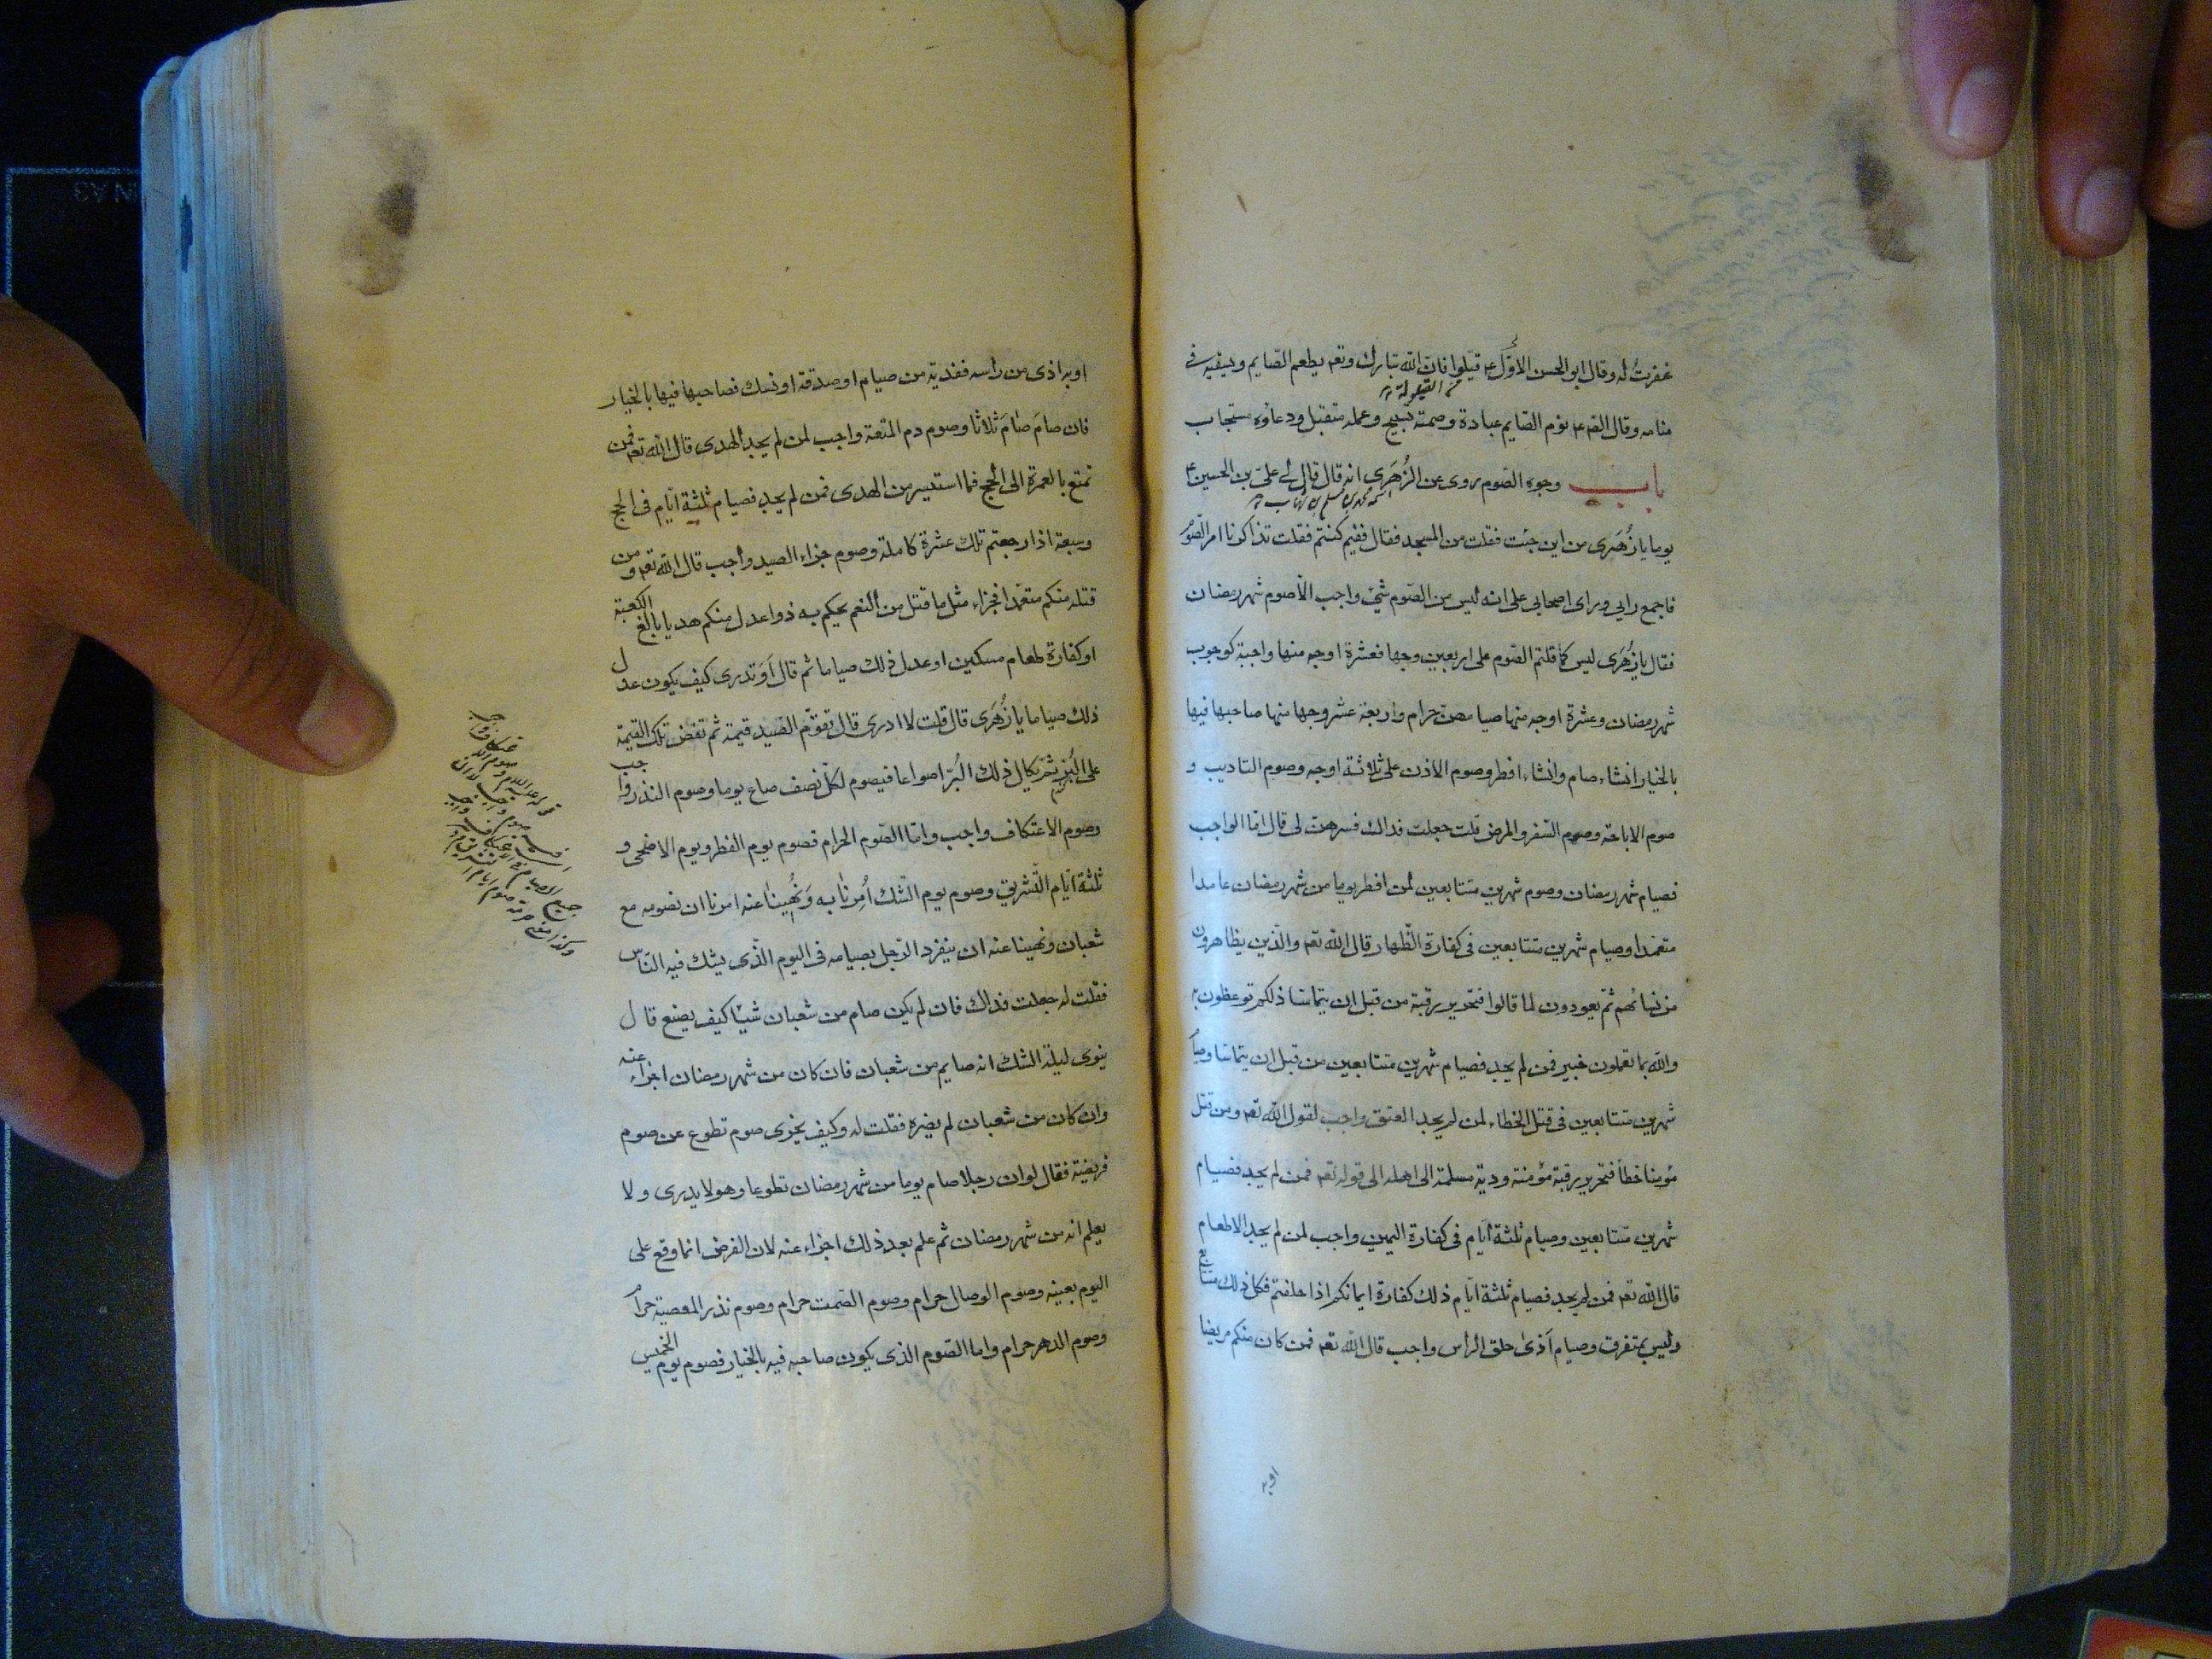 غفرت له وقال ابو الحسن الاوّل ع قيلوا فانّ الله تبارك وتعه يطعم الصّايم ويسقيه فى
من القيلولة
منامه وقال الصّ ع نوم الصّايم عبادة وصمته تسبيح وعمله متقبل ودعاؤه مستجاب
باب وجوه الصّوم روى عن الزُهَرى انه قال قال لى علىّ بن الحسين ع
يوما يا زُهَرى من اين جئت فقلت من المسجد فقال ففيم كنتم فقلت تذاكرنا امر الصّوم
فاجمع رايى وراى اصحابى على انه ليس من الصّوم شئ واجب الّا صوم شهر رمضان
فقال يا زُهَرى ليس كما قلتم الصّوم على اربعين وجها فعشرة اوجه منها واجبة كوجوب
شهر رمضان وعشرة اوجه منها صيامهنّ حرام واربعة عشر وجها منها صاحبها فيها
بالخيار انشاء صام وانشاء افطر وصوم الاذن على ثلاثة اوجه وصوم التاديب و
صوم الاباحة وصوم السّفر والمرض قلت جعلت فداك فسرهنّ لى قال امّا الواجب
فصيام شهر رمضان وصوم شهرين متتابعين لمن افطر يوما من شهر رمضان عامدا
متعمّدا وصيام شهرين متتابعين فى كفارة الظّهار قال الله تعه والّذين يظاهرون
من نسائهم ثمّ يعودون لما قالوا فتحرير رقبة من قبل ان يتماسّا ذلكم توعظون به
والله بما تعملون خبير فمن لم يجد فصيام شهرين متتابعين من قبل ان يتماسّا وصيام
شهرين متتابعين فى قتل الخطاء لمن لم يجد العتق واجب لقول الله تعه ومن قتل
مؤمنا خطأ فتحرير رقبة مؤمنة ودية مسلمة الى اهله الى قوله تعه فمن لم يجد فصيام
شهرين متتابعين وصيام ثلثة ايّام فى كفارة اليمين واجب لمن لم يجد الاطعام
قال الله تعه فمن لم يجد فصيام ثلثة ايّام ذلك كفارة ايمانكم اذا حلفتم فكل ذلك متتابع
وليس بمتفرق وصيام اَذى حلق الراس واجب قال الله تعه فمن كان منكم مريضا
او به
او به اذى من راسه ففدية من صيام او صدقة او نسك فصاحبها فيها بالخيار
فان صامَ صامَ ثلاثا وصوم دم المتعة واجب لمن لم يجد الهدى قال الله تعه فمن
تمتع بالعمرة الى الحج فما استيسر من الهدى فمن لم يجد فصيام ثلثة ايّام فى الحج
وسبعة اذا رجعتم تلك عشرة كاملة وصوم جزاء الصيد واجب قال الله تعه ومن
قتله منكم متعمّدا فجزاء مثل ما قتل من النعم يحكم به ذوا عدل منكم هديا بالغ الكعبة
او كفارة طعام مسكين او عدل ذلك صياما ثم قال اَوَتدرى كيف يكون عدل
ذلك صياما يا زُهَرى قال قلت لا ادرى قال تقوّم الصّيد قيمة ثم تفض تلك القيمة
على البُرّ ثم يكال ذلك البُرّ اصواعا فيصوم لكلّ نصف صاع يوما وصوم النذر واجب
وصوم الاعتكاف واجب وامّا الصّوم الحرام فصوم يوم الفطر ويوم الاضحى و
ثلثة ايّام التّشريق وصوم يوم الشّك اُمِرنا به وَنُهينا عنه امرنا ان نصومه مع
شعبان ونهينا عنه ان ينفرد الرّجل بصيامه فى اليوم الّذى يشك فيه النّاس
فقلت له جعلت فداك فان لم يكن صام من شعبان شيئا كيف يصنع قال
ينوى ليلة الشك انه صايم من شعبان فان كان من شهر رمضان اجزاء عنه
وان كان من شعبان لم يضره فقلت له وكيف يجزى صوم تطوع عن صوم
فريضة فقال لو ان رجلا صام يوما من شهر رمضان تطوعا وهو لا يدرى ولا
يعلم انه من شهر رمضان ثم علم بعد ذلك اجزاء عنه لان الفرض انما وقع على
اليوم بعينه وصوم الوصال حرام وصوم الصّمت حرام وصوم نذر المعصية حرام
وصوم الدهر حرام واما الصّوم الذى يكون صاحبه فيه بالخيار فصوم يوم الخميس